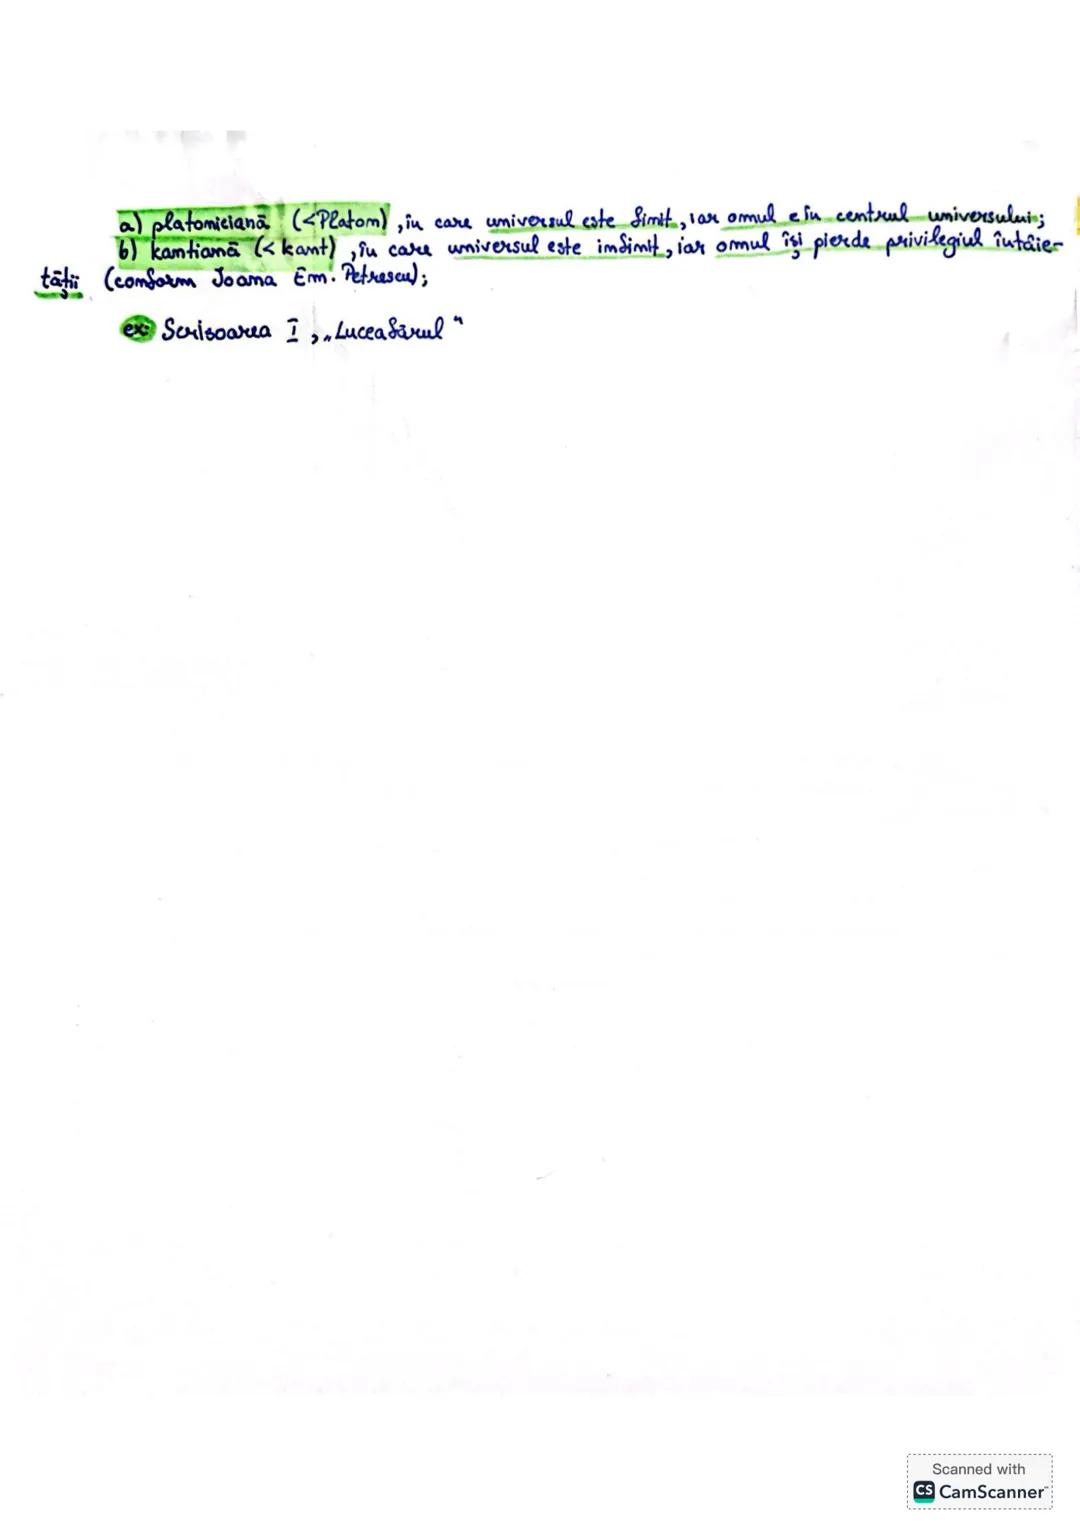 a) platoniciană (<Platon), în care universul este finit, iar omul e în centrul universului;
b) kantiană (< kant), în care universul este infinit, iar omul își pierde privilegiul întâie-
tății (conform Ioana Em. Petrescu);
ex: Scrisoarea I, „Luceafărul"
Scanned with
CS CamScanner